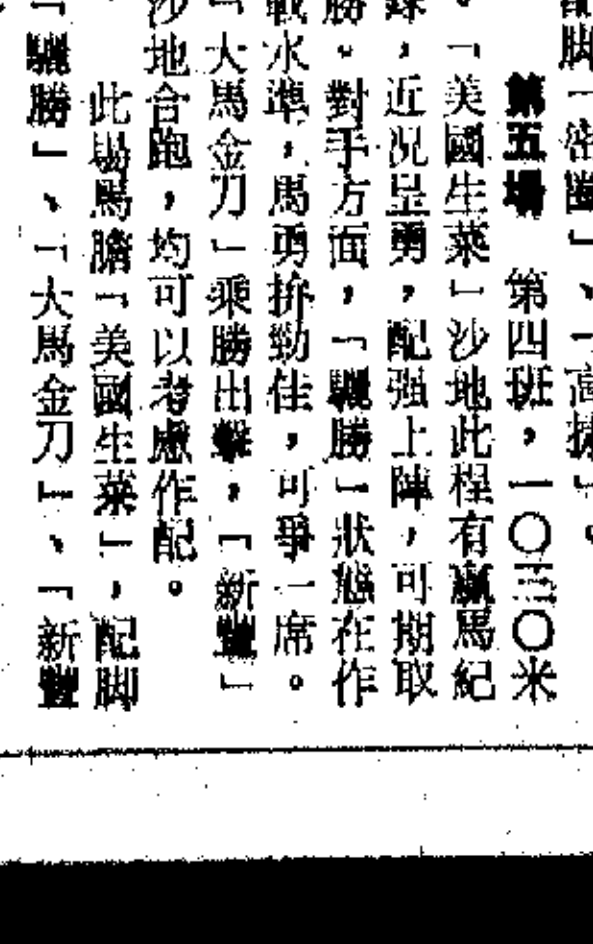 脚「密圖」、「高捷」。
第五場　第四班，一〇三〇米
。「美國生菜」沙地此程有贏馬紀
錄，近况呈勇，配强上陣，可期取
勝。對手方面，「驪勝」狀態在作
戰水準，馬勇拚勁佳，可爭一席。
「大馬金刀」乘勝出擊，「新豐」
沙地合跑，均可以考慮作配。
此場馬膽「美國生菜」，配脚
「驪勝」、「大馬金刀」、「新豐